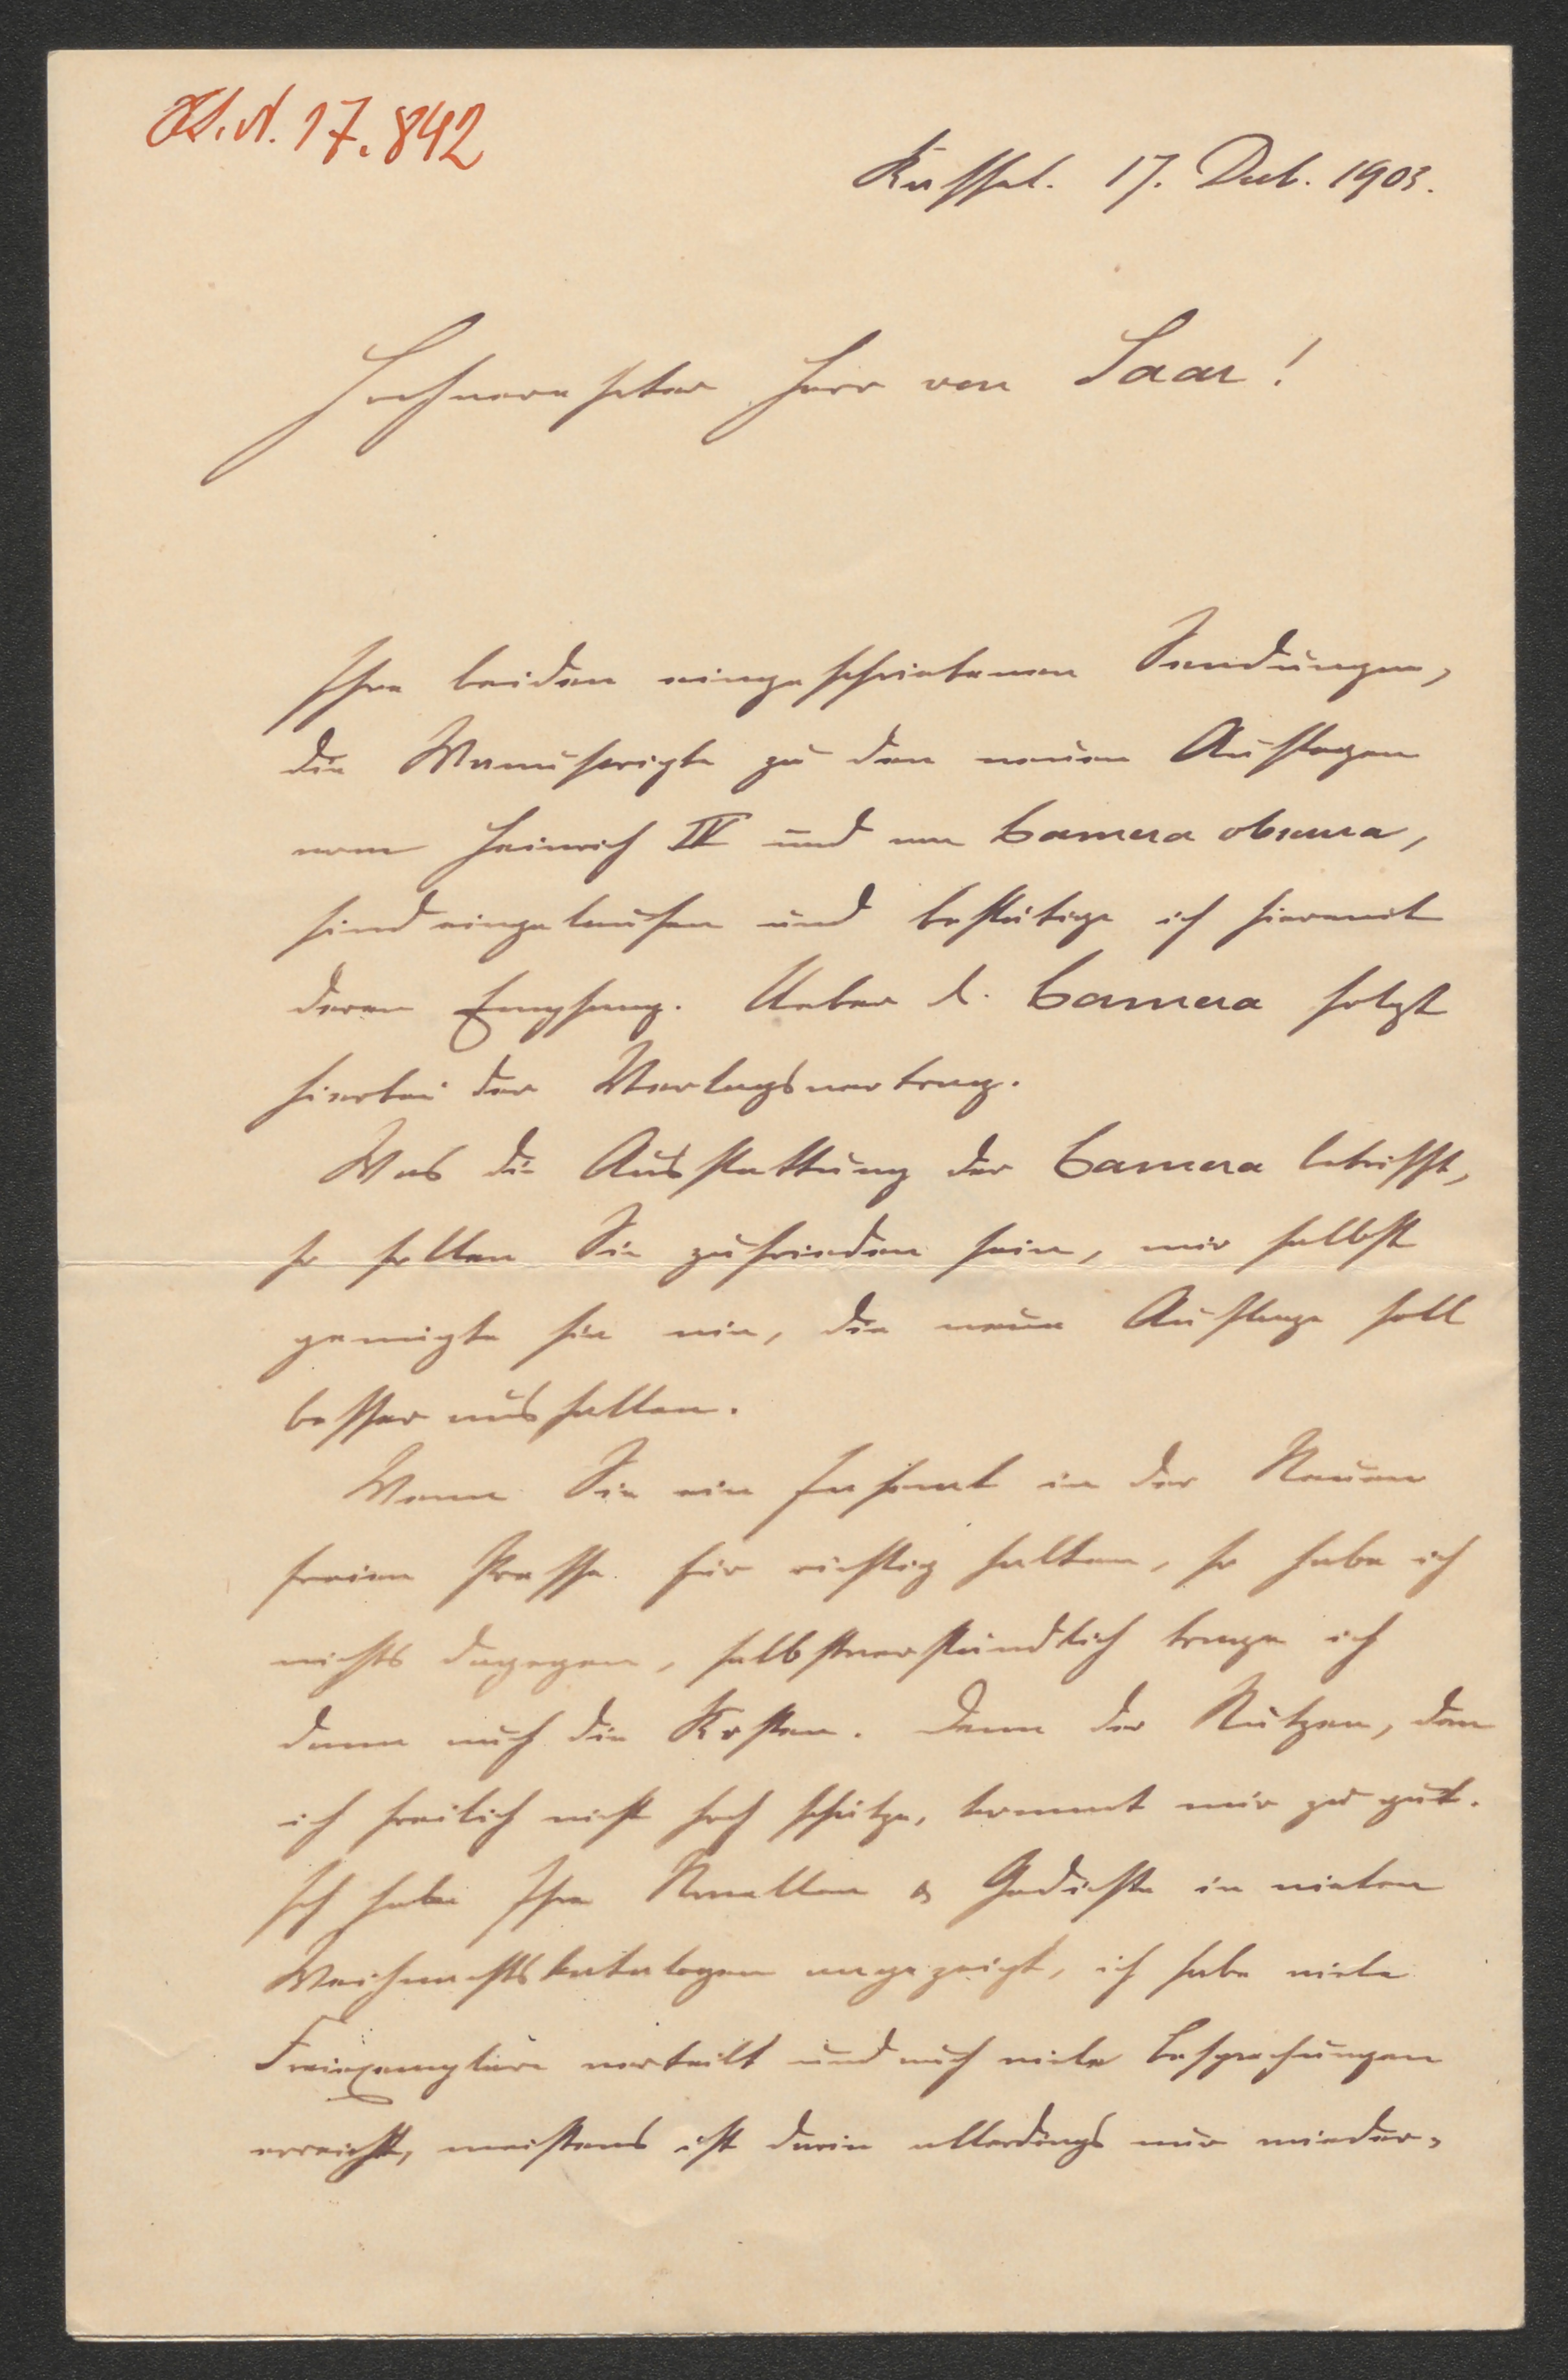 H.I.N. 17.842
Kassel. 17. Deb. 1903.
Hochverehrter Herr von Saar!
Ihre beiden eingeschriebenen Sendungen,
die Manuscripte zu den neuen Auflagen
vom Heinrich IV und von Camera obscura,
sind eingelaufen und bestätige ich hiermit
deren Empfang. Ueber d. Camera folgt
hierbei der Verlagsvertrag.
Was die Ausstattung der Camera betrifft,
so sollen Sie zufrieden sein, mir selbst
genügte sie nie, die neue Auflage soll
besser ausfallen.
Wenn Sie ein Inserat in der Neuen
freien Presse für richtig halten, so habe ich
nichts dagegen, selbstverständlich trage ich
dann auch die Kosten. Denn der Nutzen, den
ich freilich nicht hoch schätze, kommt mir zu gut.
Ich habe Ihre Novellen & Gedichte in vielen
Weihnachtskatalogen angezeigt, ich habe viele
Freiexemplare verteilt und auch viele Besprechungen
erreicht, meistens ist darin allerdings nur wieder-